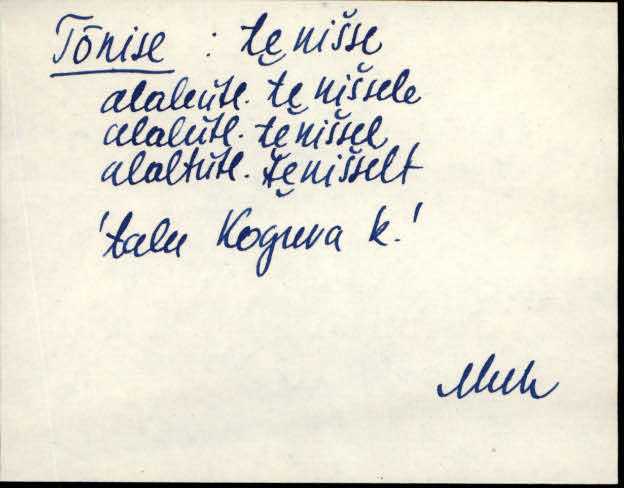 Tõnise : te̮nišse
alaleütl. te̮nišsele
alalütl. te̮nišsel
alaltütl. te̮nišselt
'talu Koguva k.'
Muh